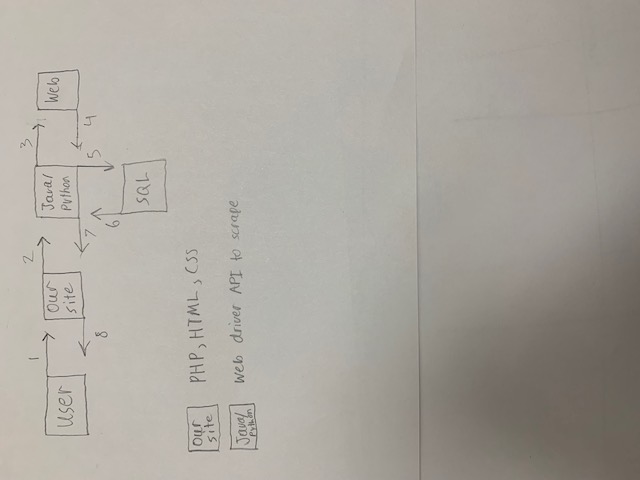 1
2
3
User
Our
site
Java/
Python
Web
8
7
5
4
6
SQL
Our
site
PHP, HTML, CSS
Java/
Python
Web driver API to scrape